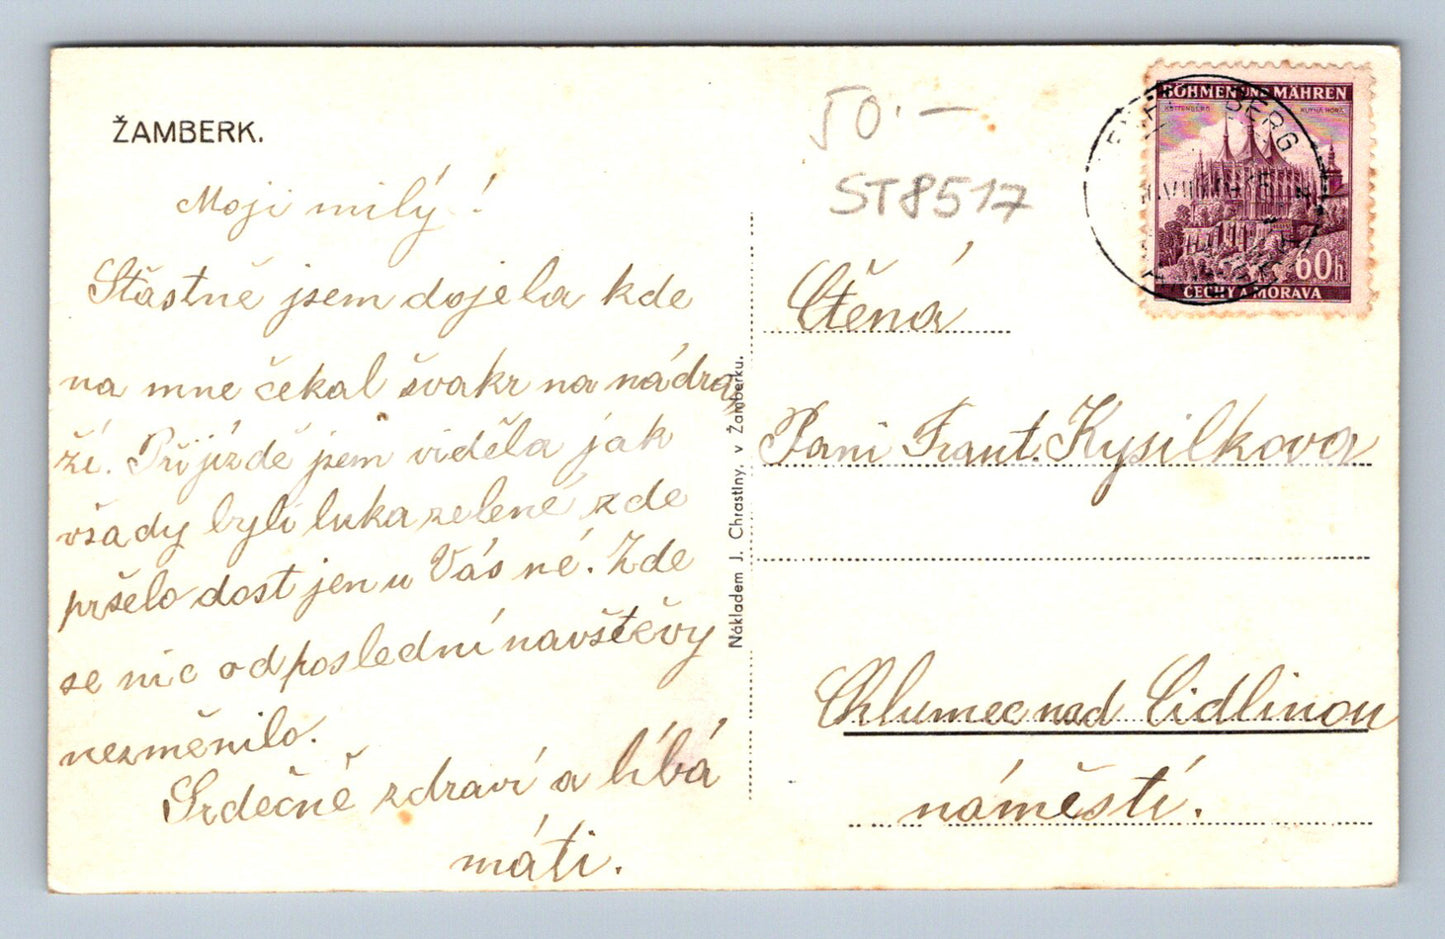 ŽAMBERK.
Moji milý!
Šťastně jsem dojela kde
na mne čekal švakr na nádra
ží. Při jízdě jsem viděla jak
všady byli luka zelené zde
pršelo dost jen u Vás né. Zde
se nic od poslední navštěvy
nezměnilo.
Srdečně zdraví a líbá
máti.
Nákladem J. Chrastiny, v Žamberku.
50.-
ST8517
BÖHMEN UND MÄHREN
KUTTENBERG KUTNÁ HORA
60h
ČECHY A MORAVA
BERG
Ctěná
Paní Frant. Kysilkova
Chlumec nad Cidlinou
náměstí.